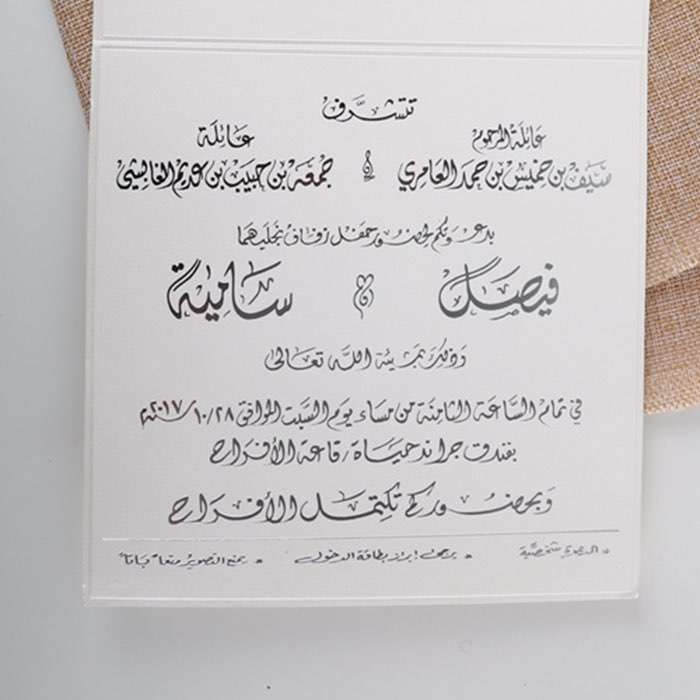 تتشرف
عائلة المرحوم عائلة
سيف بن خميس بن حمد العامري & جمعه بن حبيب بن عديم الغابشي
بدعوتكم لحضور حفل زفاف نجليهما
فيصل & سامية
وذلك بمشيئة الله تعالى
في تمام الساعة الثامنة من مساء يوم السبت الموافق ٢٠١٧/١٠/٢٨م
بفندق جراند حياة / قاعة الأفراح
وبحضوركم تكتمل الأفراح
الدعوة شخصية * يرجى إبراز بطاقة الدخول * يمنع التصوير منعاً باتاً